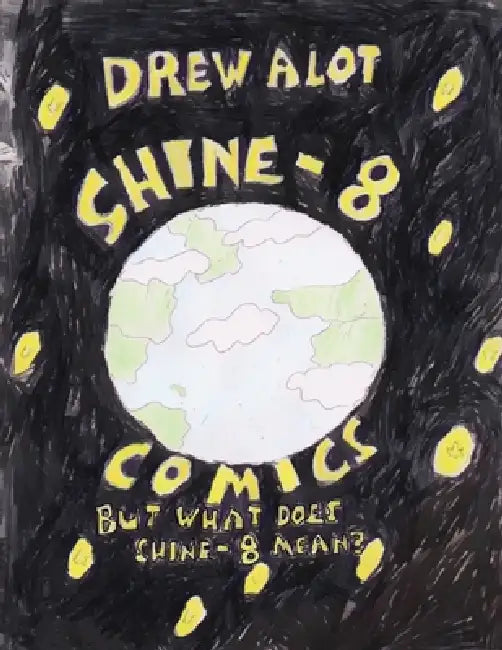 DREW ALOT
SHINE-8
COMICS
BUT WHAT DOES
SHINE-8 MEAN?